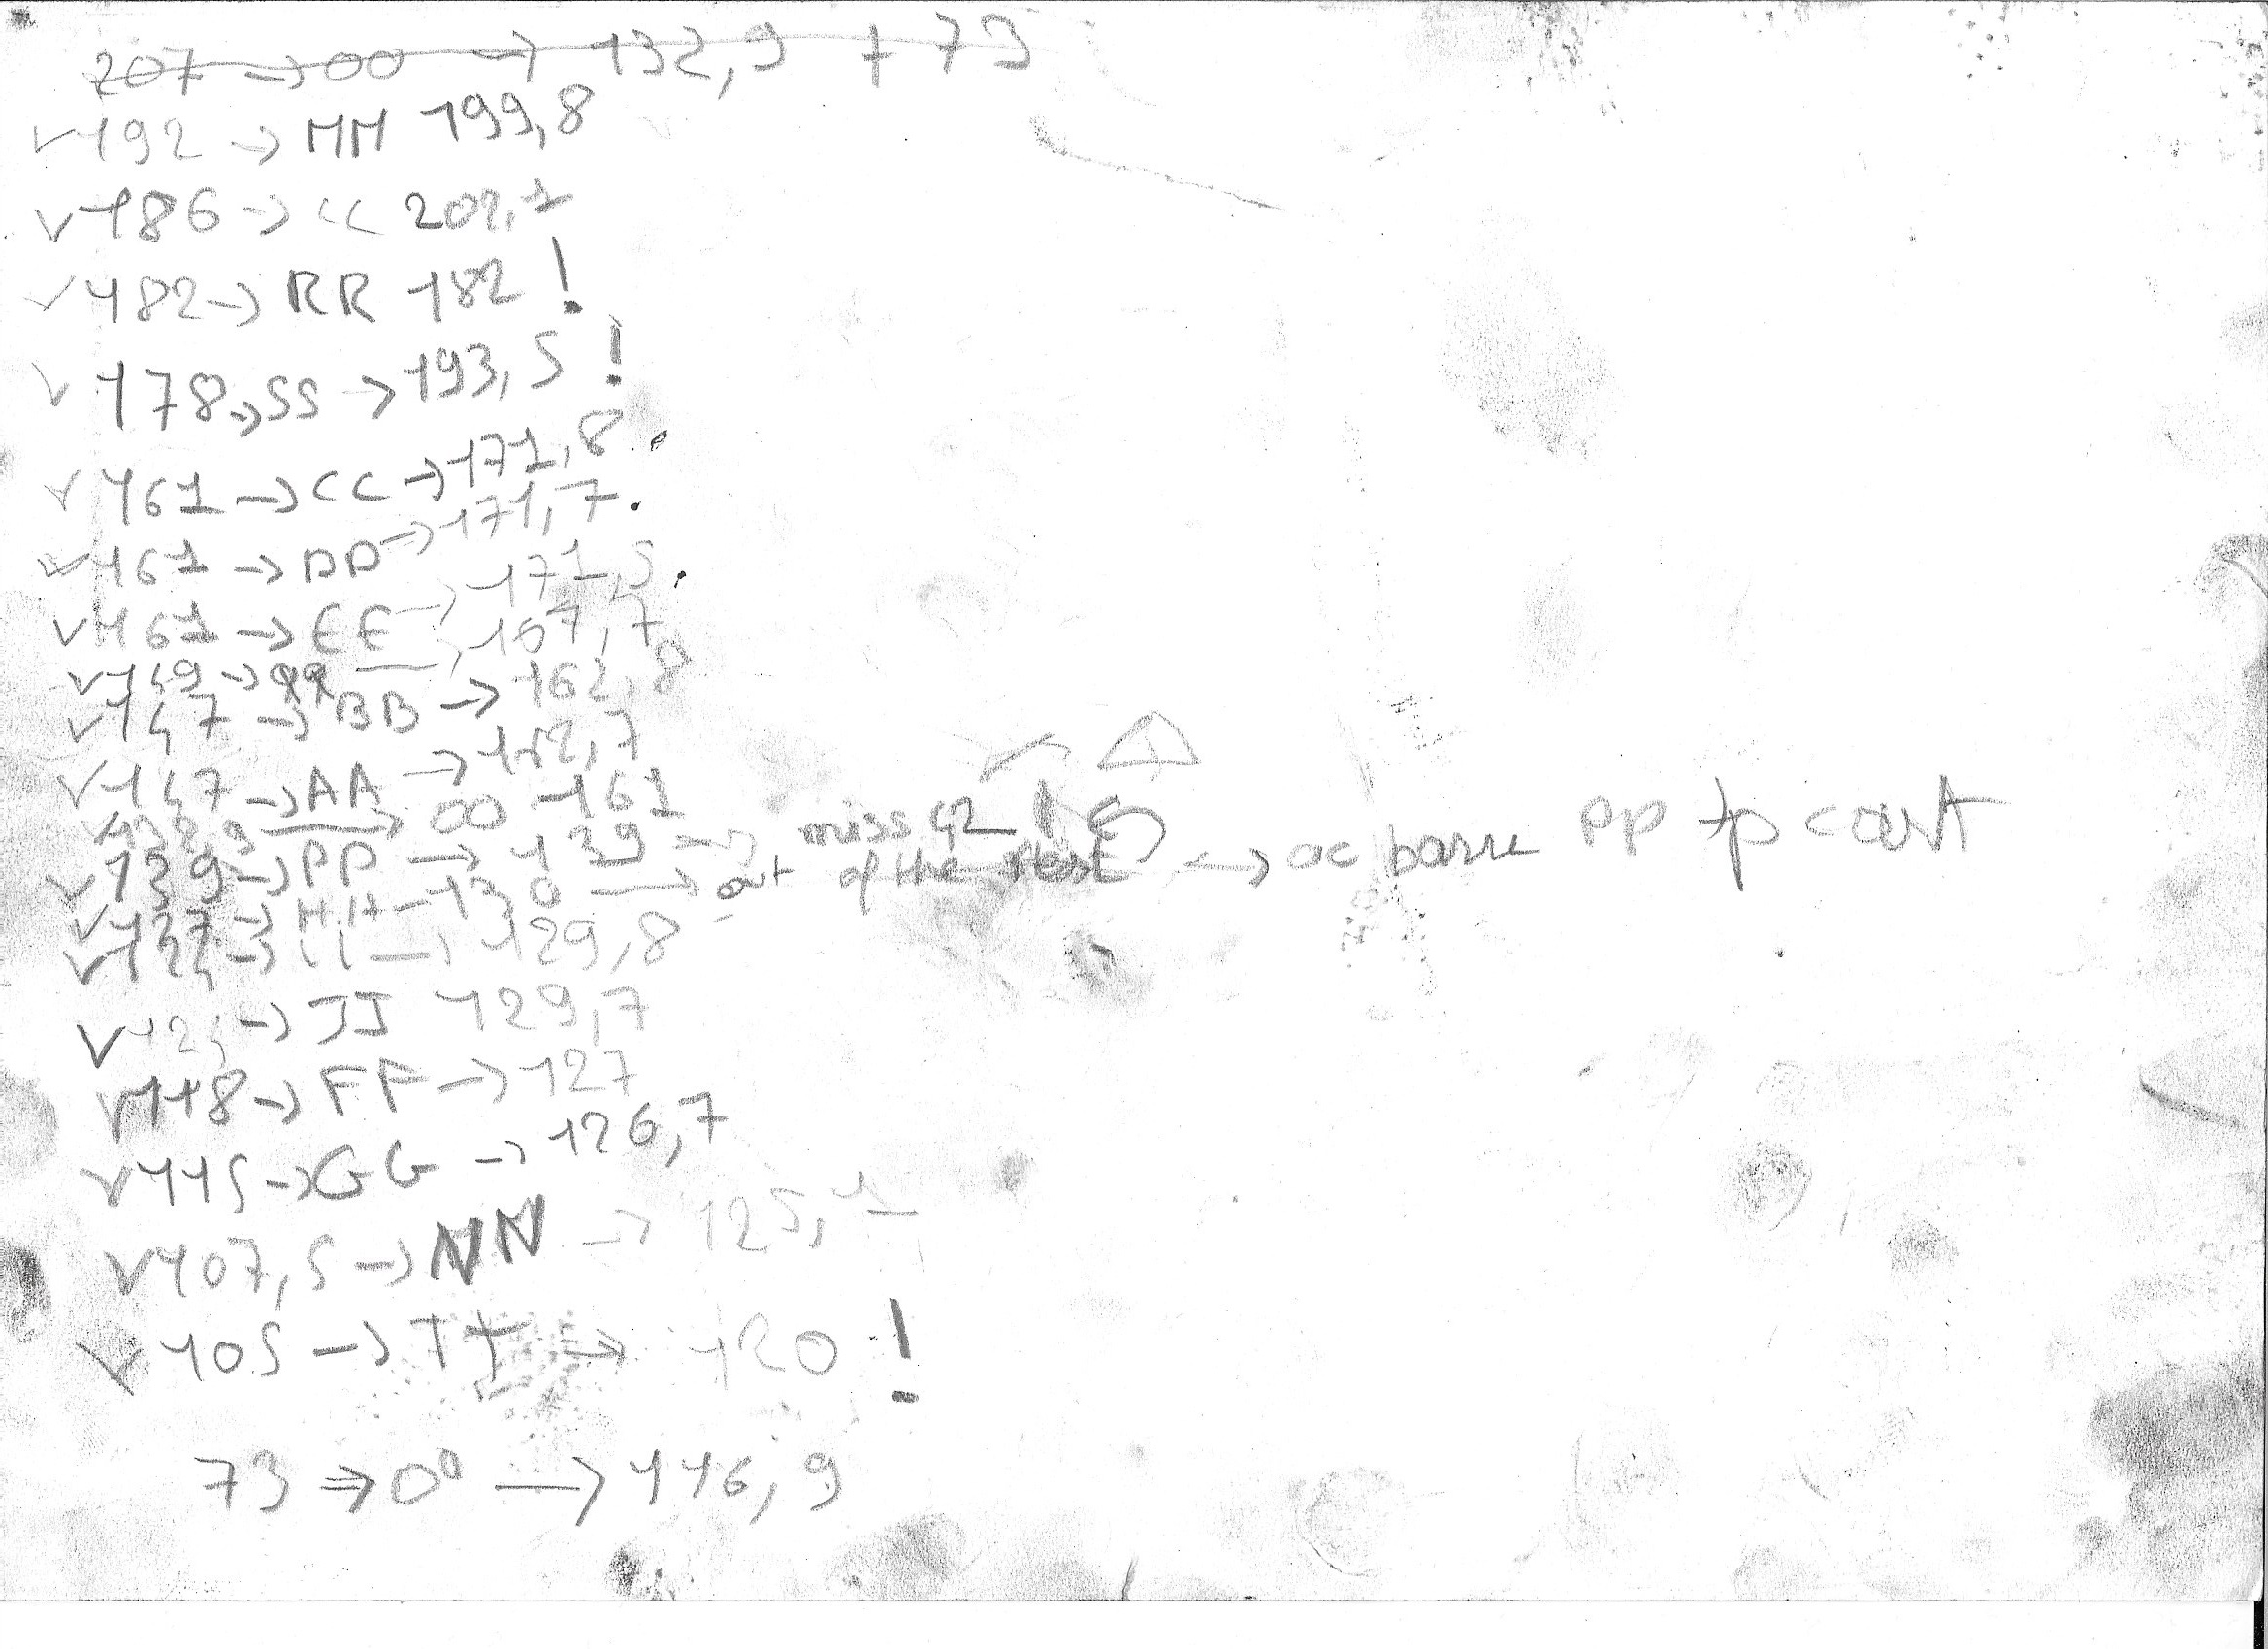 207 → OO → 132,9 + 73
✓ 192 → MM 199,8
✓ 186 → CC 202,1
✓ 182 → RR 182 !
✓ 178 → SS → 193,5 !
✓ 161 → CC → 171,8.
✓ 161 → DD → 171,7.
✓ 161 → EE → 171,5.
✓ 149 → QQ → 167,7
✓ 147 → BB → 162,8
✓ 147 → AA → 162,7
132,9 → OO 161
✓ 139 → PP → 139 → miss 42 !
✓ 127 → HH → 130 → out of the rest → ac barre PP tp court
✓ 124 → II → 129,8
✓ 124 → JJ 129,7
✓ 118 → FF → 127
✓ 115 → GG → 126,7
✓ 107,5 → NN → 125,1
✓ 105 → TT → 120 !
73 → OO → 116,9